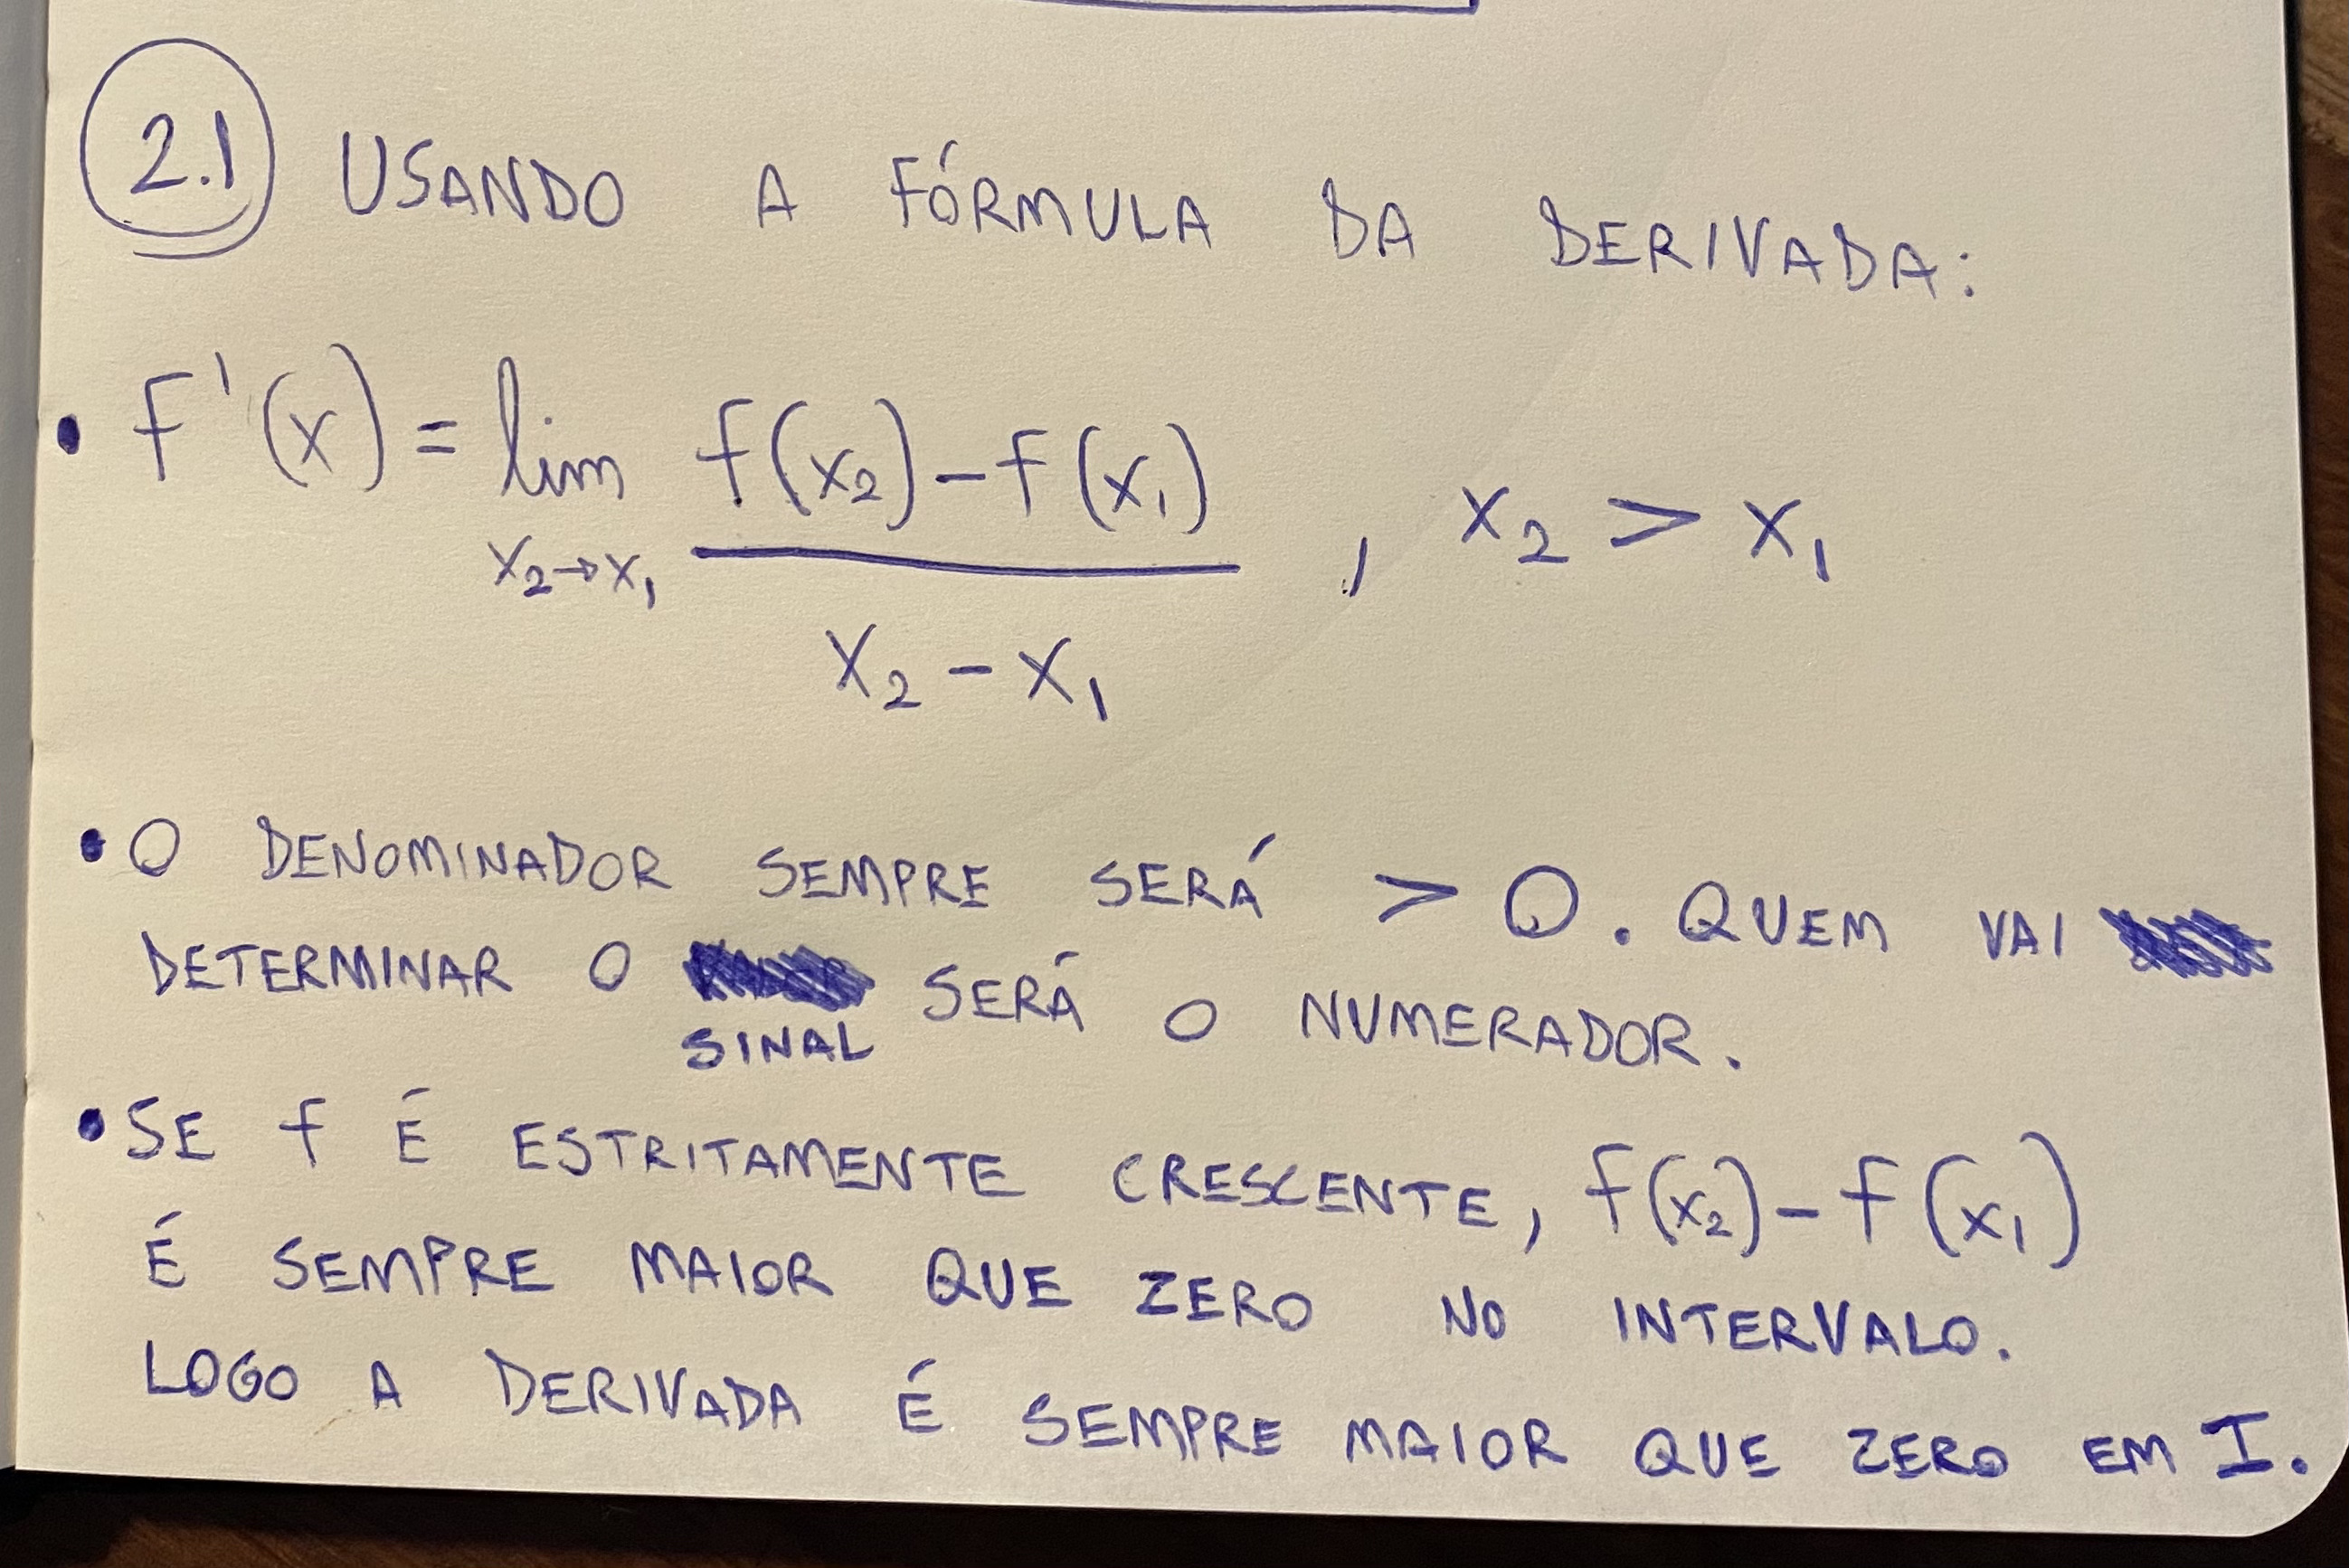 2.1 USANDO A FÓRMULA DA DERIVADA:
• f'(x) = lim f(x₂) - f(x₁) , x₂ > x₁
x₂→x₁ x₂ - x₁
• O DENOMINADOR SEMPRE SERÁ > 0. QUEM VAI
DETERMINAR O SINAL SERÁ O NUMERADOR.
• SE f É ESTRITAMENTE CRESCENTE, f(x₂) - f(x₁)
É SEMPRE MAIOR QUE ZERO NO INTERVALO.
LOGO A DERIVADA É SEMPRE MAIOR QUE ZERO EM I.